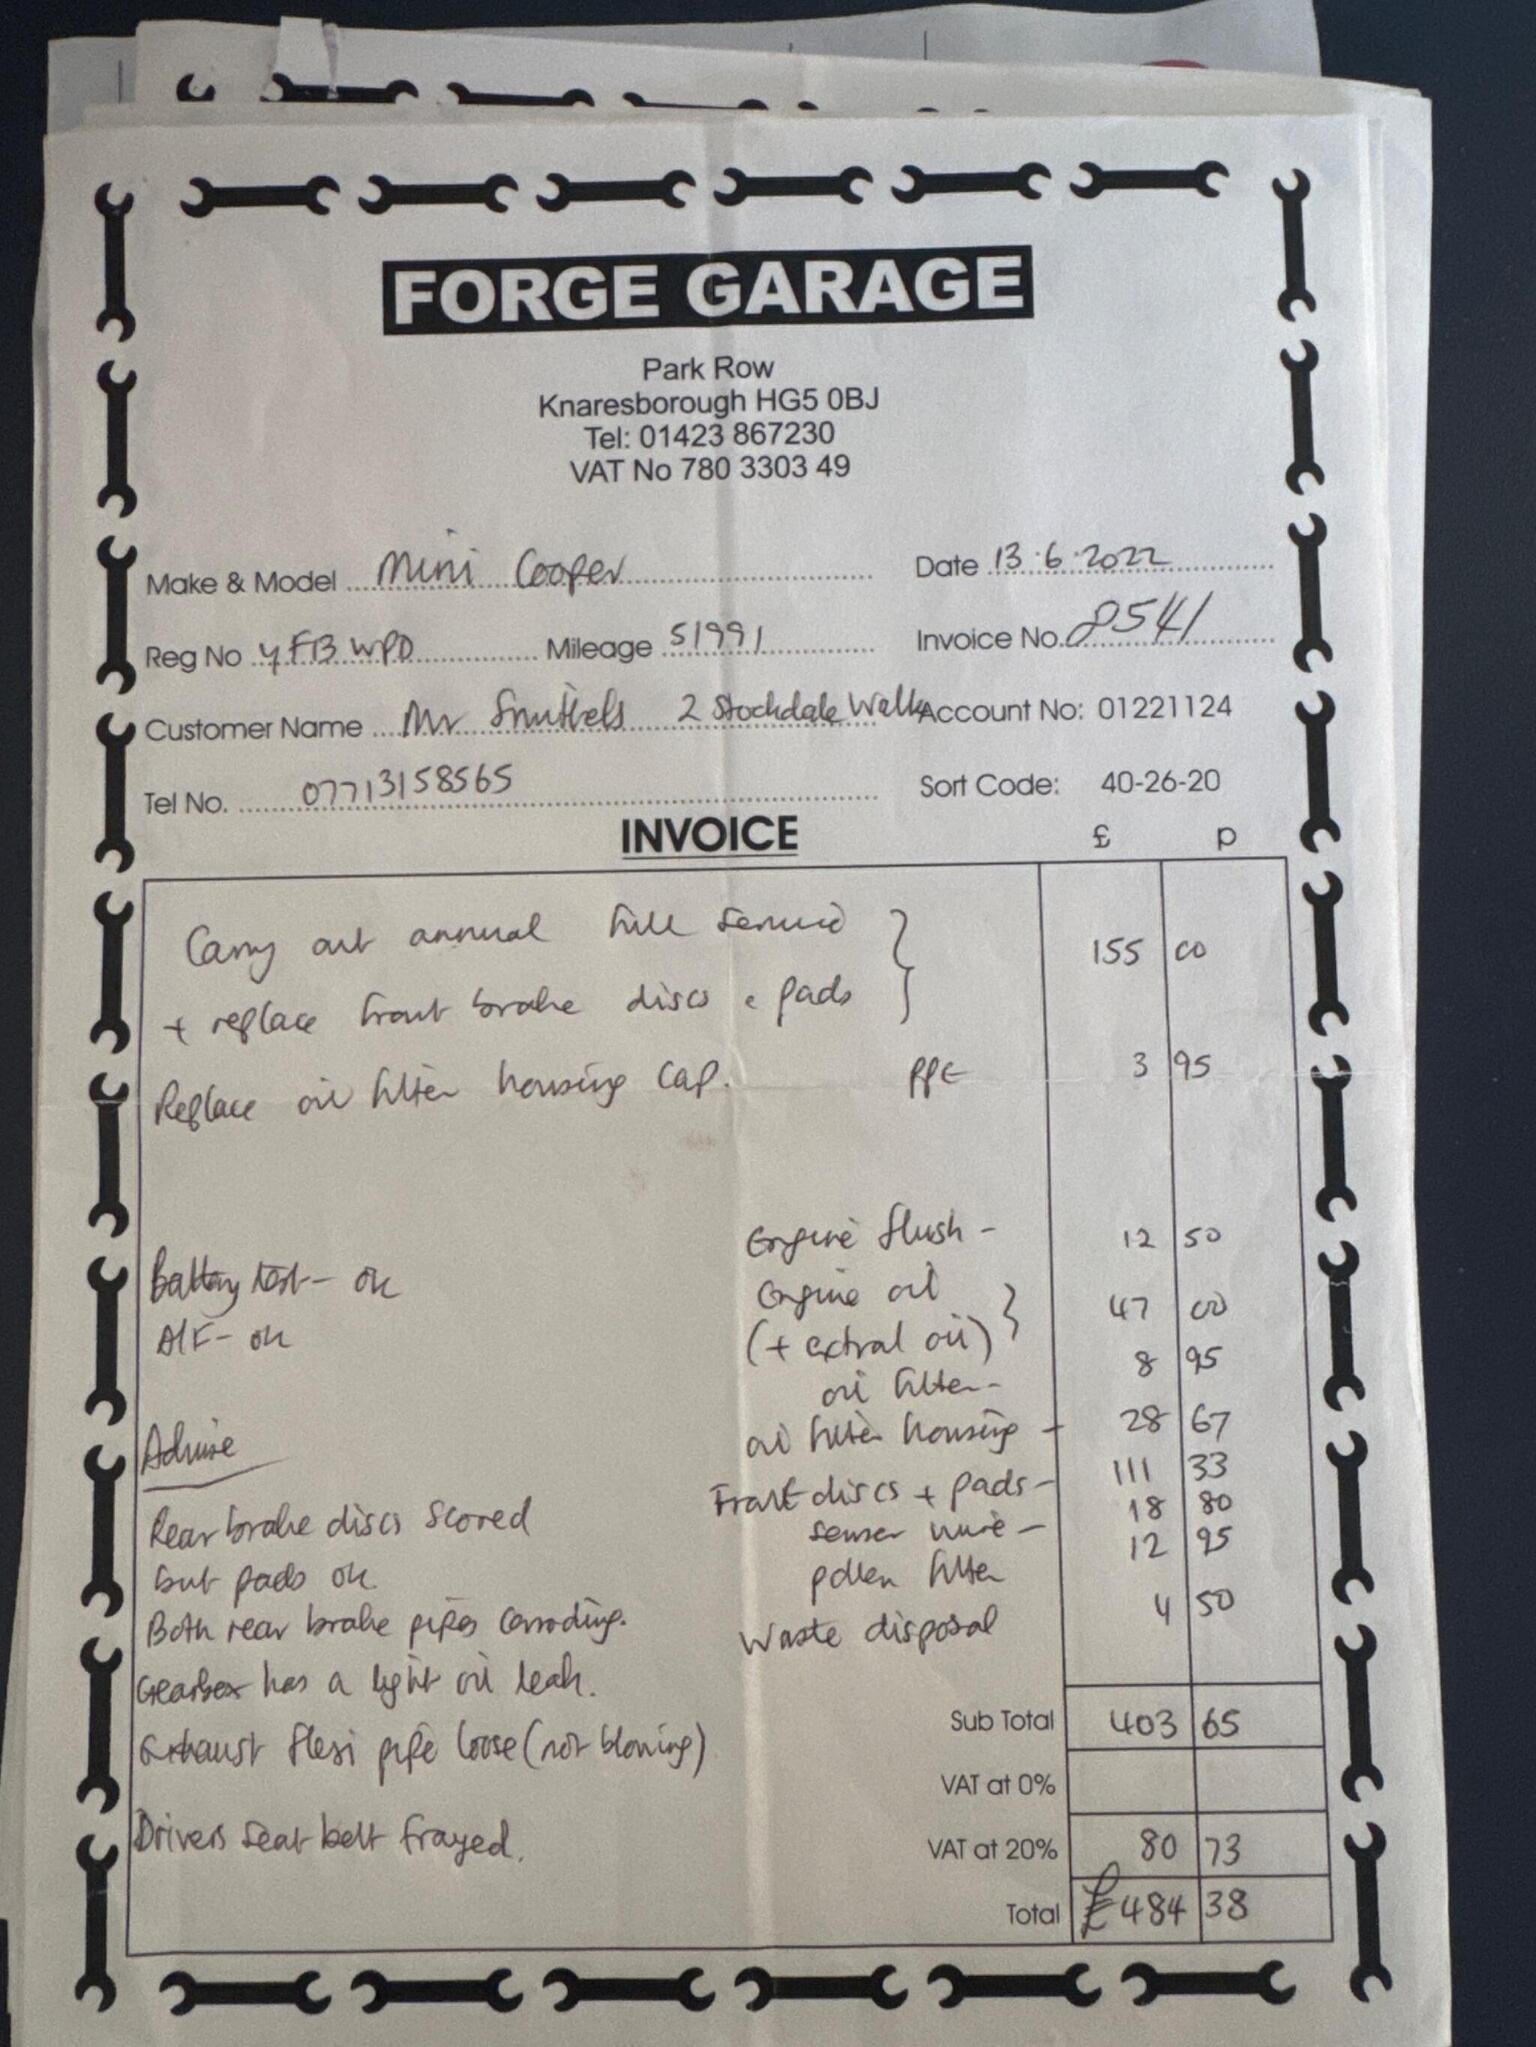 FORGE GARAGE
Park Row
Knaresborough HG5 0BJ
Tel: 01423 867230
VAT No 780 3303 49
Make & Model Mini Cooper Date 13.6.2022
Reg No YF13 WPD Mileage 51991 Invoice No. 8541
Customer Name Mr 2 Stockdale Walk Account No: 01221124
Tel No. 07713158565 Sort Code: 40-26-20
INVOICE £ p
Carry out annual full service
+ replace front brake discs & pads 155 00
Replace oil filter housing cap. PPE 3 95
Engine flush - 12 50
Battery test - ok Engine oil
Air - ok (+ extral oil) 47 00
oil filter - 8 95
Advise oil filter housing - 28 67
Front discs + pads - 111 33
Rear brake discs scored senser wire - 18 80
but pads ok pollen filter 12 95
Both rear brake pipes corroding. Waste disposal 4 50
Gearbox has a light oil leak.
Sub Total 403 65
Exhaust flexi pipe loose (not blowing)
VAT at 0%
Drivers seat belt frayed. VAT at 20% 80 73
Total £484 38